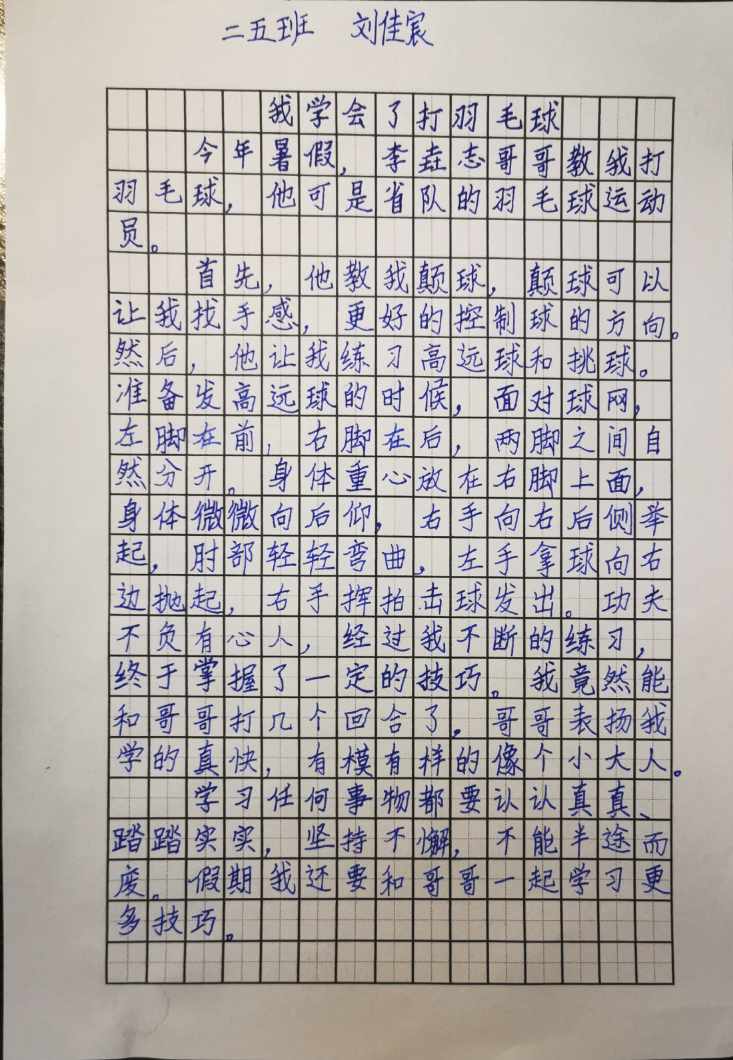 二五班 刘佳宸
我学会了打羽毛球
今年暑假，李垚志哥哥教我打
羽毛球，他可是省队的羽毛球运动
员。
首先，他教我颠球，颠球可以
让我找手感，更好的控制球的方向。
然后，他让我练习高远球和挑球。
准备发高远球的时候，面对球网，
左脚在前，右脚在后，两脚之间自
然分开。身体重心放在右脚上面，
身体微微向后仰，右手向右后侧举
起，肘部轻轻弯曲，左手拿球向右
边抛起，右手挥拍击球发出。功夫
不负有心人，经过我不断的练习，
终于掌握了一定的技巧。我竟然能
和哥哥打几个回合了。哥哥表扬我
学的真快，有模有样的像个小大人。
学习任何事物都要认认真真、
踏踏实实，坚持不懈，不能半途而
废。假期我还要和哥哥一起学习更
多技巧。